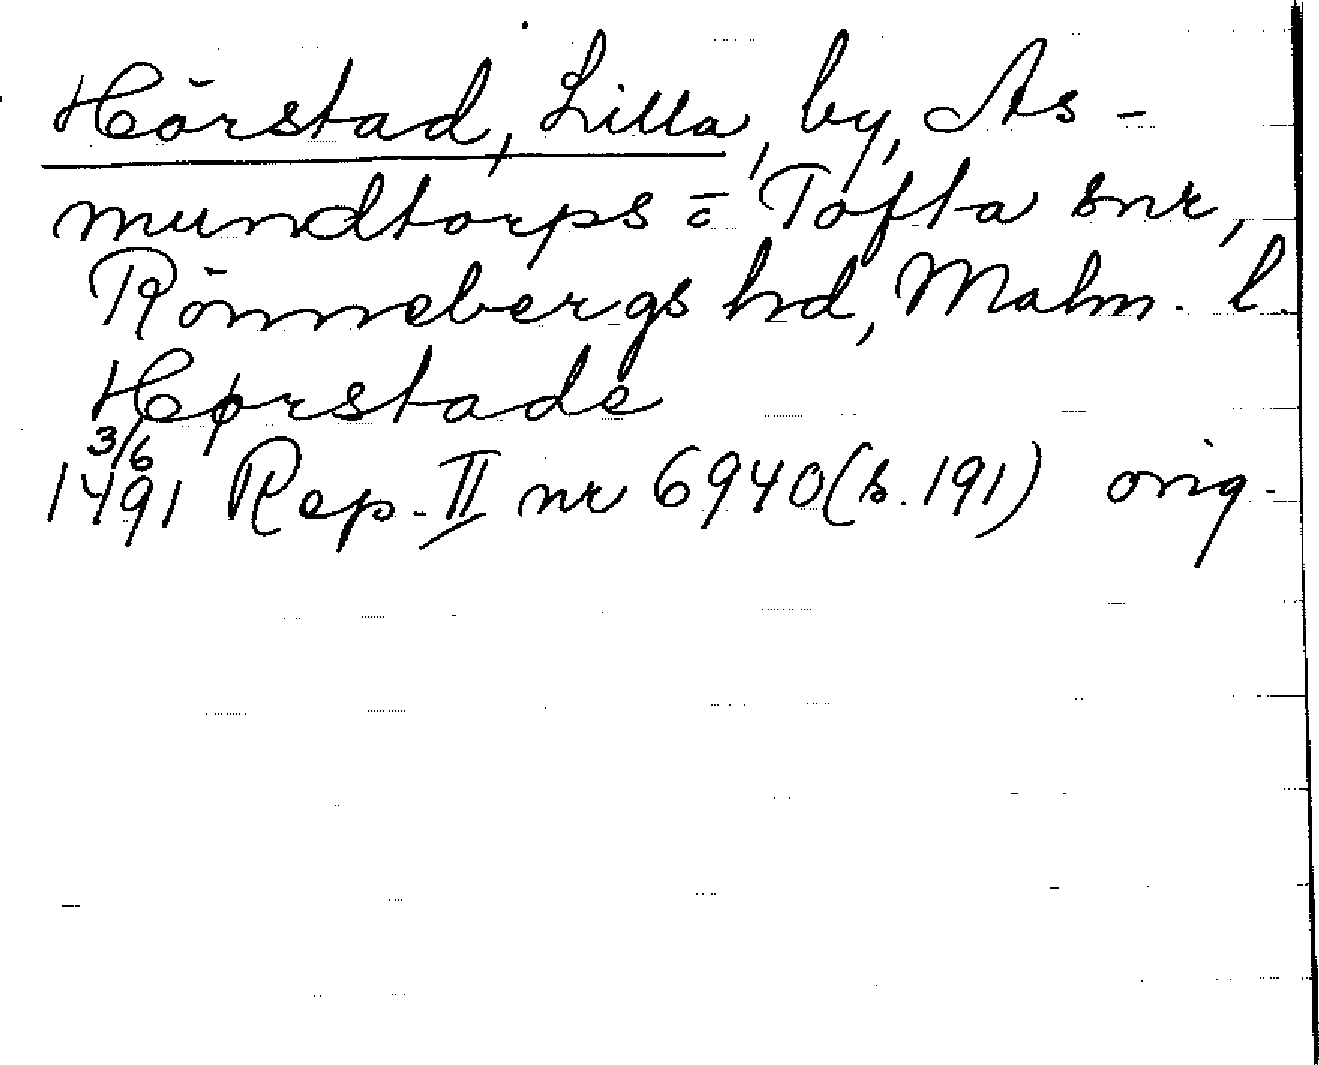 Hörstad, Lilla, by, As-
mundtorps o Tofta snr,
Rönnebergs hd, Malm. l.
Hørstade
3/6
1491 Rep. II nr 6940 (s. 191) orig.